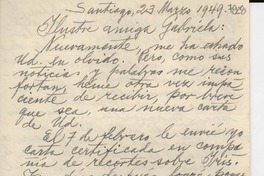 Santiago, 23 Marzo 1949.
Ilustre amiga Gabriela:
Nuevamente, me ha echado
Ud. en olvido. Pero, como sus
noticias y palabras me recon
fortan, heme otra vez impa
ciente de recibir, por breve
que sea, una nueva carta
de Ud.
El 7 de febrero le envié yo
carta certificada en compa
ñía de recortes sobre Iris.